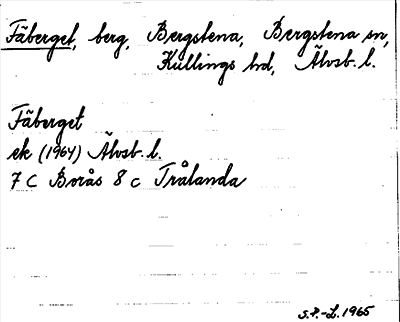 Fäberget, berg, Bergstena, Bergstena sn,
Kullings hd, Älvsb. l.
Fäberget
ek (1964) Älvsb. l.
7 C Borås 8 c Trålanda
S.P.-L. 1965